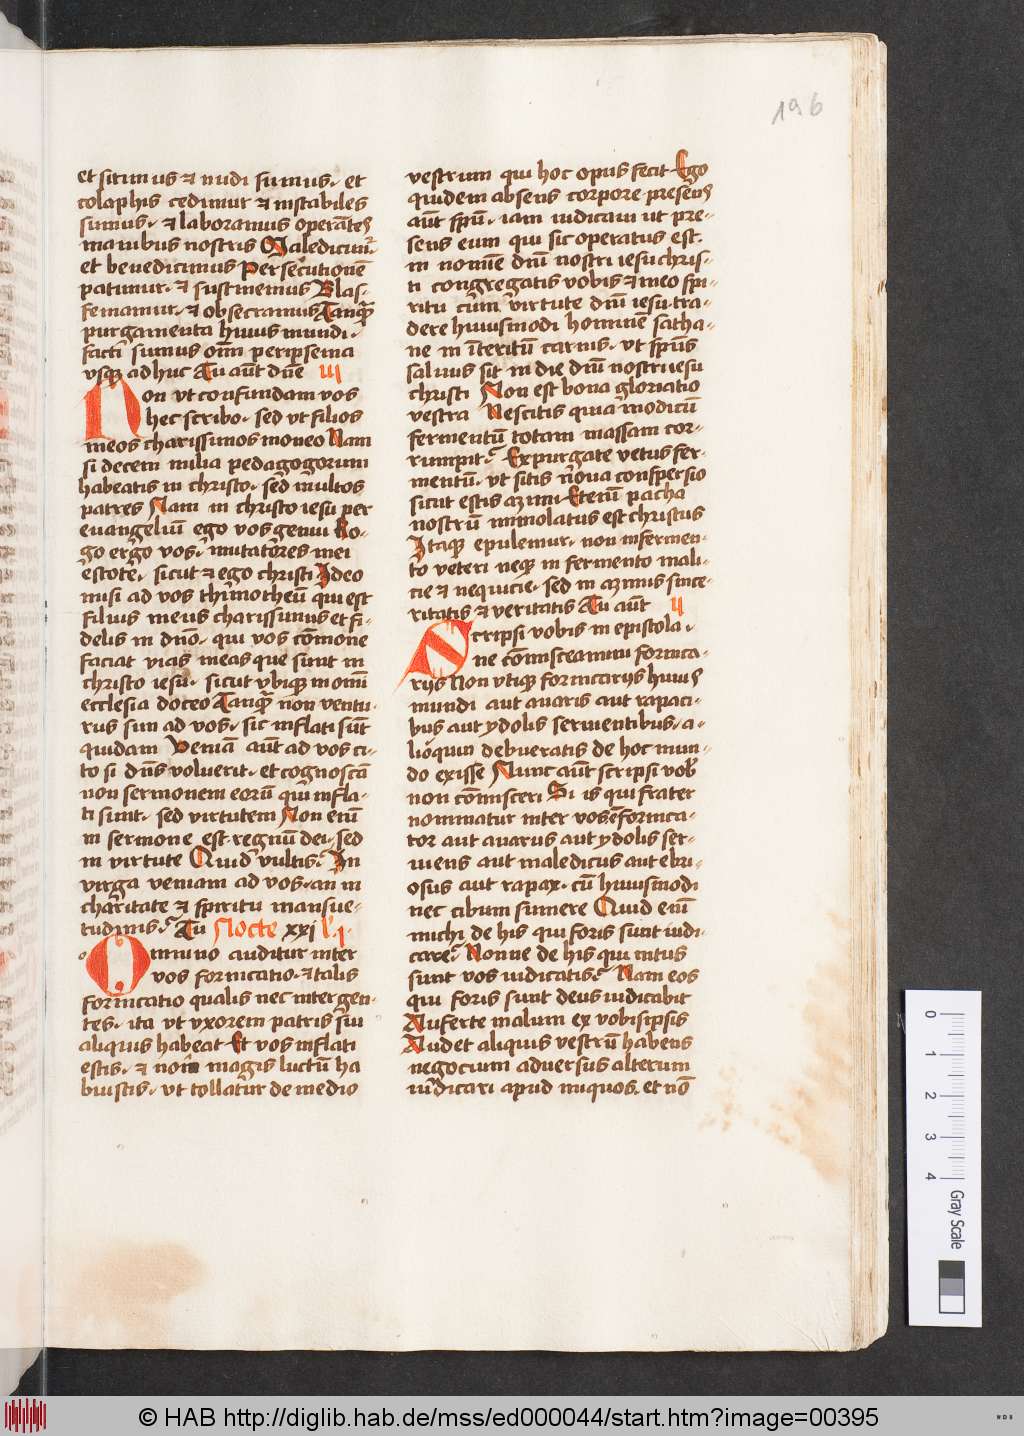 196
et sitimus et nudi sumus. et
colaphis cedimur et instabiles
sumus. et laboramus operātes
manibus nostris Maledicim᷑
et benedicimus Persecutionē
patimur. et sustinemus Blas-
femamur. et obsecramus Tanqꝫ
purgamenta huius mundi.
facti sumus om̄ peripsema
vsqꝫ adhuc Tu aūt dn̄e iii
Non vt confundam vos
hec scribo. sed vt filios
meos charissimos moneo Nam
si decem milia pedagogorum
habeatis in christo. sed multos
patres Nam in christo iesu per
euangeliū ego vos genui Ro-
go ergo vos. imitatores mei
estote. sicut et ego christi Ideo
misi ad vos thimotheū qui est
filius meus charissimus et fi-
delis in dn̄o. qui vos cōmone
faciat vias meas que sunt in
christo iesu. sicut vbiqꝫ in om̄i
ecclesia doceo Tanqꝫ non ventu-
rus sim ad vos. sic inflati sūt
quidam Veniā aūt ad vos ci-
to si dn̄s voluerit. et cognoscā
non sermonem eorū qui infla-
ti sunt. sed virtutem Non enī
in sermone est regnū dei. sed
in virtute Quid vultis. In
virga veniam ad vos. an in
charitate et spiritu mansue-
tudinis. Tu Nocte xxi l'.i.
o Omnino auditur inter
vos fornicatio. et talis
fornicatio qualis nec inter gen-
tes. ita vt vxorem patris sui
aliquis habeat Et vos inflati
estis. et non magis luctū ha
buistis. vt tollatur de medio
vestrum qui hoc opus fecit Ego
quidem absens corpore presens
aūt spū. iam iudicaui ut pre-
sens eum qui sic operatus est.
in nomīe dn̄i nostri iesu chris-
ti congregatis vobis et meo spi-
ritu cum virtute dn̄i iesu tra-
dere huiusmodi hominē satha-
ne in īteritū carnis. vt spūs
saluus sit in die dn̄i nostri iesu
christi Non est bona gloriatio
vestra Nescitis quia modicū
fermentū totam massam cor-
rumpit. Expurgate vetus fer-
mentū. vt sitis noua conspersio
sicut estis azimi Etenī pacha
nostrū immolatus est christus
Itaqꝫ epulemur. non in fermen-
to veteri neqꝫ in fermento mali-
cie et nequicie. sed in azimis since-
ritatis et veritatis Tu aūt ii
Scripsi vobis in epistola.
ne cōmisceamini fornica-
rijs Non vtiqꝫ fornicarijs huius
mundi aut auaris aut rapaci-
bus aut ydolis seruientibus. a-
lioquin debueratis de hoc mun-
do exisse Nunc aūt scripsi vob̄
non cōmisceri Si is qui frater
nominatur inter vos ē fornica-
tor aut auarus aut ydolis ser-
uiens aut maledicus aut ebri-
osus aut rapax. cū huiusmodi
nec cibum sumere Quid enī
michi de his qui foris sunt iudi-
care. Nonne de his qui intus
sunt vos iudicatis. Nam eos
qui foris sunt deus iudicabit
Auferte malum ex vobisipsis
Audet aliquis vestrū habens
negocium aduersus alterum
iudicari apud iniquos. et nō
0 1 2 3 4 Gray Scale
© HAB http://diglib.hab.de/mss/ed000044/start.htm?image=00395